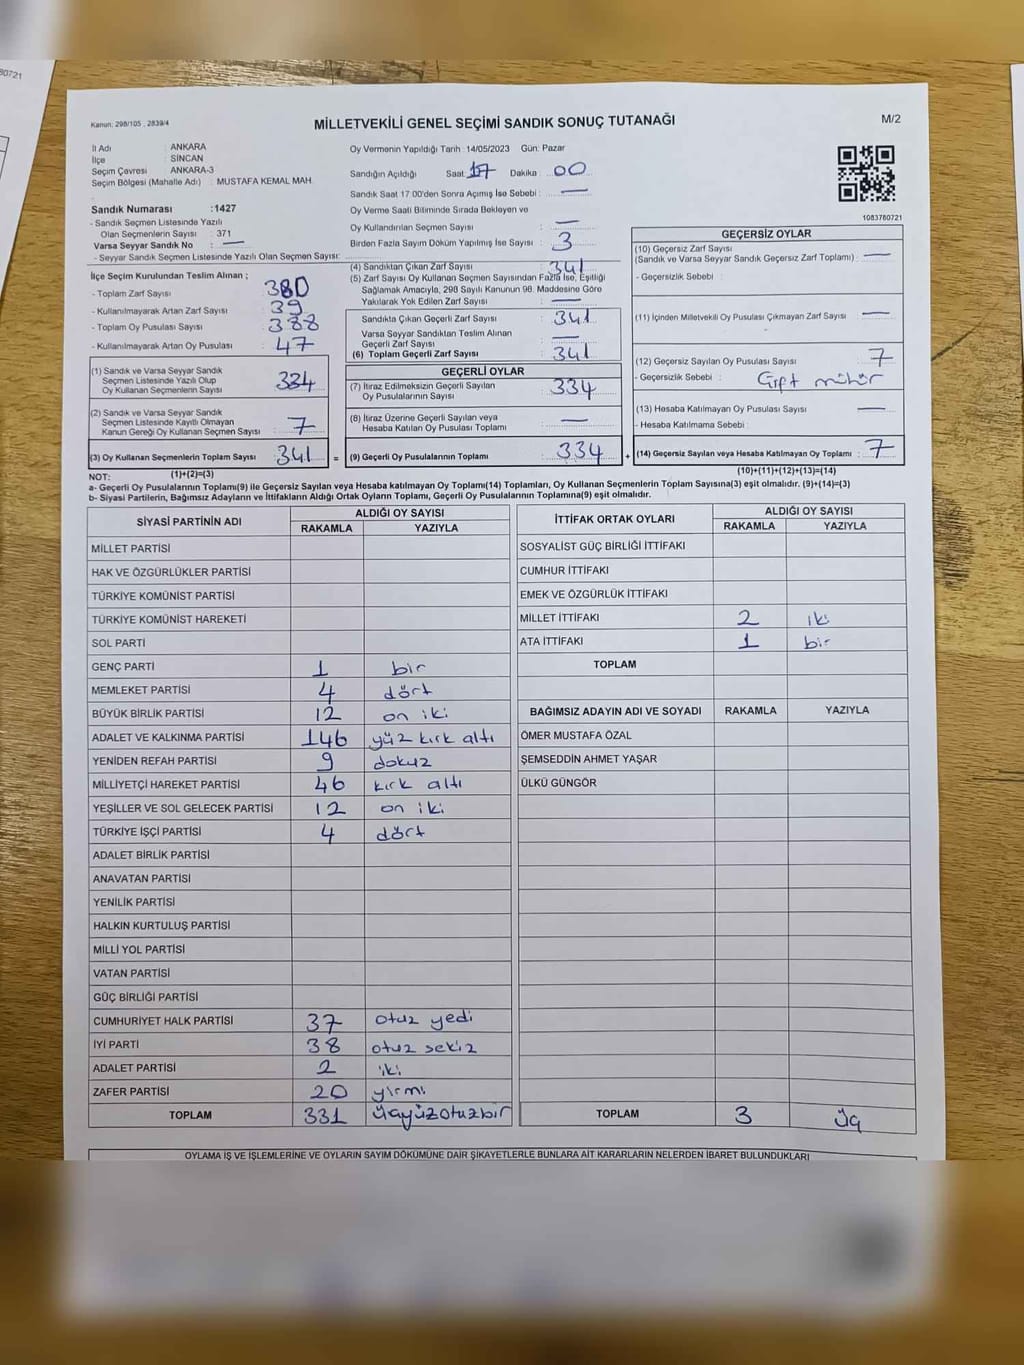 80721
Kanun: 298/105 , 2839/4
MİLLETVEKİLİ GENEL SEÇİMİ SANDIK SONUÇ TUTANAĞI
M/2
İl Adı : ANKARA
İlçe : SİNCAN
Seçim Çevresi : ANKARA-3
Seçim Bölgesi (Mahalle Adı) : MUSTAFA KEMAL MAH.
Sandık Numarası :1427
- Sandık Seçmen Listesinde Yazılı
Olan Seçmenlerin Sayısı : 371
Varsa Seyyar Sandık No : —
- Seyyar Sandık Seçmen Listesinde Yazılı Olan Seçmen Sayısı:
Oy Vermenin Yapıldığı Tarih :14/05/2023 Gün: Pazar
Sandığın Açıldığı Saat: 17 Dakika : 00
Sandık Saat 17.00'den Sonra Açımış İse Sebebi : —
Oy Verme Saati Bitiminde Sırada Bekleyen ve
Oy Kullandırılan Seçmen Sayısı : —
Birden Fazla Sayım Döküm Yapılmış İse Sayısı : 3
1083780721
İlçe Seçim Kurulundan Teslim Alınan ;
- Toplam Zarf Sayısı : 380
- Kullanılmayarak Artan Zarf Sayısı : 39
- Toplam Oy Pusulası Sayısı : 388
- Kullanılmayarak Artan Oy Pusulası : 47
(1) Sandık ve Varsa Seyyar Sandık
Seçmen Listesinde Yazılı Olup
Oy Kullanan Seçmenlerin Sayısı : 334
(2) Sandık ve Varsa Seyyar Sandık
Seçmen Listesinde Kayıtlı Olmayan
Kanun Gereği Oy Kullanan Seçmen Sayısı : 7
(3) Oy Kullanan Seçmenlerin Toplam Sayısı : 341
(4) Sandıktan Çıkan Zarf Sayısı : 341
(5) Zarf Sayısı Oy Kullanan Seçmen Sayısından Fazla İse, Eşitliği
Sağlamak Amacıyla, 298 Sayılı Kanunun 98. Maddesine Göre
Yakılarak Yok Edilen Zarf Sayısı : —
Sandıkta Çıkan Geçerli Zarf Sayısı : 341
Varsa Seyyar Sandıktan Teslim Alınan
Geçerli Zarf Sayısı : —
(6) Toplam Geçerli Zarf Sayısı : 341
GEÇERLİ OYLAR
(7) İtiraz Edilmeksizin Geçerli Sayılan
Oy Pusulalarının Sayısı : 334
(8) İtiraz Üzerine Geçerli Sayılan veya
Hesaba Katılan Oy Pusulası Toplamı : —
= (9) Geçerli Oy Pusulalarının Toplamı : 334
GEÇERSİZ OYLAR
(10) Geçersiz Zarf Sayısı
(Sandık ve Varsa Seyyar Sandık Geçersiz Zarf Toplamı) : —
- Geçersizlik Sebebi :
(11) İçinden Milletvekili Oy Pusulası Çıkmayan Zarf Sayısı : —
(12) Geçersiz Sayılan Oy Pusulası Sayısı : 7
- Geçersizlik Sebebi : Çift mühür
(13) Hesaba Katılmayan Oy Pusulası Sayısı : —
- Hesaba Katılmama Sebebi :
+ (14) Geçersiz Sayılan veya Hesaba Katılmayan Oy Toplamı : 7
NOT: (1)+(2)=(3)
(10)+(11)+(12)+(13)=(14)
a- Geçerli Oy Pusulalarının Toplamı(9) ile Geçersiz Sayılan veya Hesaba katılmayan Oy Toplamı(14) Toplamları, Oy Kullanan Seçmenlerin Toplam Sayısına(3) eşit olmalıdır. (9)+(14)=(3)
b- Siyasi Partilerin, Bağımsız Adayların ve İttifakların Aldığı Ortak Oyların Toplamı, Geçerli Oy Pusulalarının Toplamına(9) eşit olmalıdır.
SİYASİ PARTİNİN ADI
ALDIĞI OY SAYISI
RAKAMLA YAZIYLA
MİLLET PARTİSİ
HAK VE ÖZGÜRLÜKLER PARTİSİ
TÜRKİYE KOMÜNİST PARTİSİ
TÜRKİYE KOMÜNİST HAREKETİ
SOL PARTİ
GENÇ PARTİ 1 bir
MEMLEKET PARTİSİ 4 dört
BÜYÜK BİRLİK PARTİSİ 12 on iki
ADALET VE KALKINMA PARTİSİ 146 yüz kırk altı
YENİDEN REFAH PARTİSİ 9 dokuz
MİLLİYETÇİ HAREKET PARTİSİ 46 kırk altı
YEŞİLLER VE SOL GELECEK PARTİSİ 12 on iki
TÜRKİYE İŞÇİ PARTİSİ 4 dört
ADALET BİRLİK PARTİSİ
ANAVATAN PARTİSİ
YENİLİK PARTİSİ
HALKIN KURTULUŞ PARTİSİ
MİLLİ YOL PARTİSİ
VATAN PARTİSİ
GÜÇ BİRLİĞİ PARTİSİ
CUMHURİYET HALK PARTİSİ 37 otuz yedi
İYİ PARTİ 38 otuz sekiz
ADALET PARTİSİ 2 iki
ZAFER PARTİSİ 20 yirmi
TOPLAM 331 üçyüzotuzbir
İTTİFAK ORTAK OYLARI
ALDIĞI OY SAYISI
RAKAMLA YAZIYLA
SOSYALİST GÜÇ BİRLİĞİ İTTİFAKI
CUMHUR İTTİFAKI
EMEK VE ÖZGÜRLÜK İTTİFAKI
MİLLET İTTİFAKI 2 iki
ATA İTTİFAKI 1 bir
TOPLAM
BAĞIMSIZ ADAYIN ADI VE SOYADI RAKAMLA YAZIYLA
ÖMER MUSTAFA ÖZAL
ŞEMSEDDİN AHMET YAŞAR
ÜLKÜ GÜNGÖR
TOPLAM 3 üç
OYLAMA İŞ VE İŞLEMLERİNE VE OYLARIN SAYIM DÖKÜMÜNE DAİR ŞİKAYETLERLE BUNLARA AİT KARARLARIN NELERDEN İBARET BULUNDUKLARI